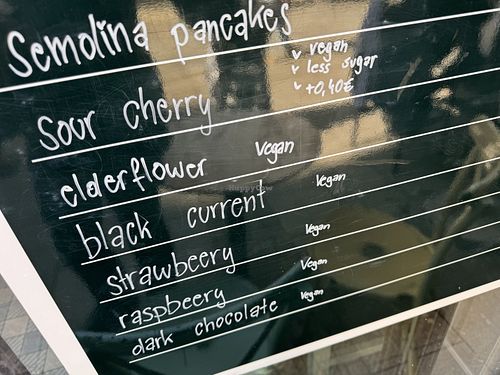 Semolina pancakes
Sour cherry
✓ vegan
✓ less sugar
✓ +0,40€
elderflower vegan
black current vegan
strawbeery vegan
raspbeery vegan
dark chocolate vegan
HappyCow